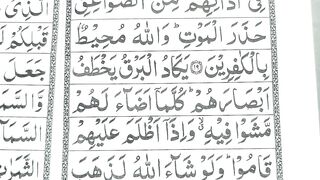 فِيٓ اٰذَانِهِمْ مِّنَ الصَّوَاعِقِ
حَذَرَ الْمَوْتِ ؕ وَاللّٰهُ مُحِيْطٌۢ
بِالْكٰفِرِيْنَ ۝۱۹ يَكَادُ الْبَرْقُ يَخْطَفُ
اَبْصَارَهُمْ ؕ كُلَّمَاۤ اَضَآءَ لَهُمْ
مَّشَوْا فِيْهِ ۙ وَاِذَاۤ اَظْلَمَ عَلَيْهِمْ
قَامُوْا ؕ وَلَوْ شَآءَ اللّٰهُ لَذَهَبَ
الَّذِيْ
قَبْلِكُمْ
جَعَلَ
وَّالسَّمَآءَ
السَّمَآءِ
الثَّمَرٰتِ